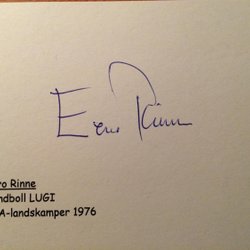 Eero Rinne
ro Rinne
ndboll LUGI
A-landskamper 1976